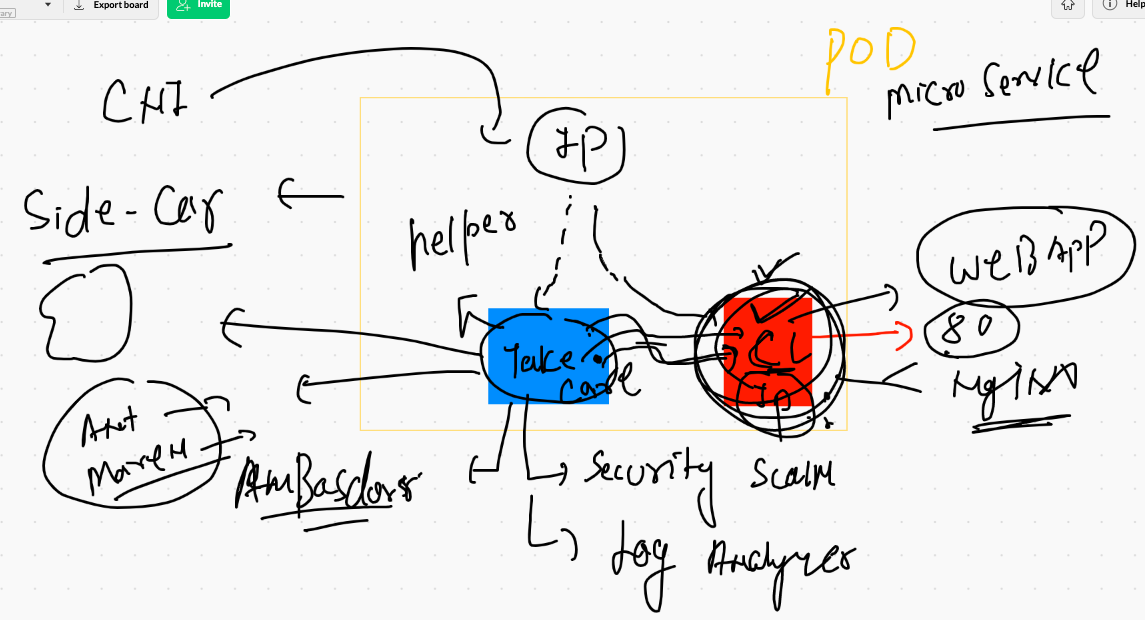 Export board
Invite
Help
POD
micro Service
CNI
IP
Side-Car
helper
WEB APP
80
Take
Care
C1
IP
NgiNX
Ant
Maven
AmBasdorr
Security Scann
Log Analyzer